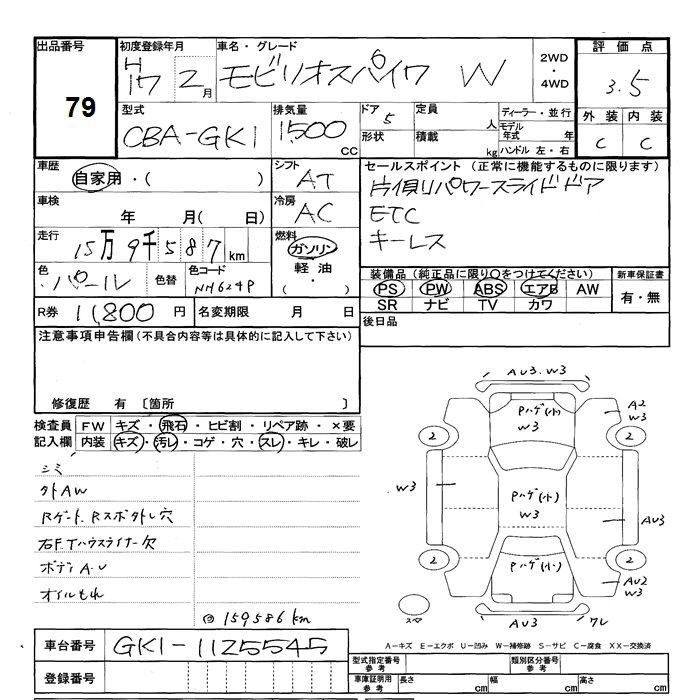 出品番号
79
初度登録年月
H17 2月
車名・グレード
モビリオスパイク W
2WD
・
4WD
評価点
3.5
型式
CBA-GK1
排気量
1,500 CC
ドア 5
形状
定員 人
積載 kg
ディーラー・並行
モデル年式 年
ハンドル 左・右
外装 内装
C C
車歴
自家用・( )
シフト
AT
車検
年 月( 日)
冷房
AC
走行
15万9千587km
燃料
ガソリン
軽油
・( )
色
パール
色替
色コード
NH624P
R券 11,800円
名変期限 月 日
セールスポイント (正常に機能するものに限ります)
片側パワースライドドア
ETC
キーレス
装備品(純正品に限り○をつけてください)
PS PW ABS エアB AW
SR ナビ TV カワ
新車保証書
有・無
後日品
注意事項申告欄(不具合内容等は具体的に記入して下さい)
修復歴 有 〔箇所 〕
検査員記入欄
FW キズ・飛石・ヒビ割・リペア跡・×要
内装 キズ・汚レ・コゲ・穴・スレ・キレ・破レ
シミ
外AW
Rゲート、Rスポイラー穴
右F.Tハウスライナー欠
ボディA.U
オイルもれ
159586km
AU3.W3
Pハゲ(小)
W3
A2
W3
2
2
W3
Pハゲ(小)
W3
AU3
2
2
Pハゲ(小)
AU2
W3
スペア
AU3
ワレ
A-キズ E-エクボ U-凹み W-補修跡 S-サビ C-腐食 XX-交換済
車台番号
GK1-1125545
登録番号
型式指定番号
参考
類別区分番号
参考
車庫証明用
参考
長さ cm
幅 cm
高さ cm